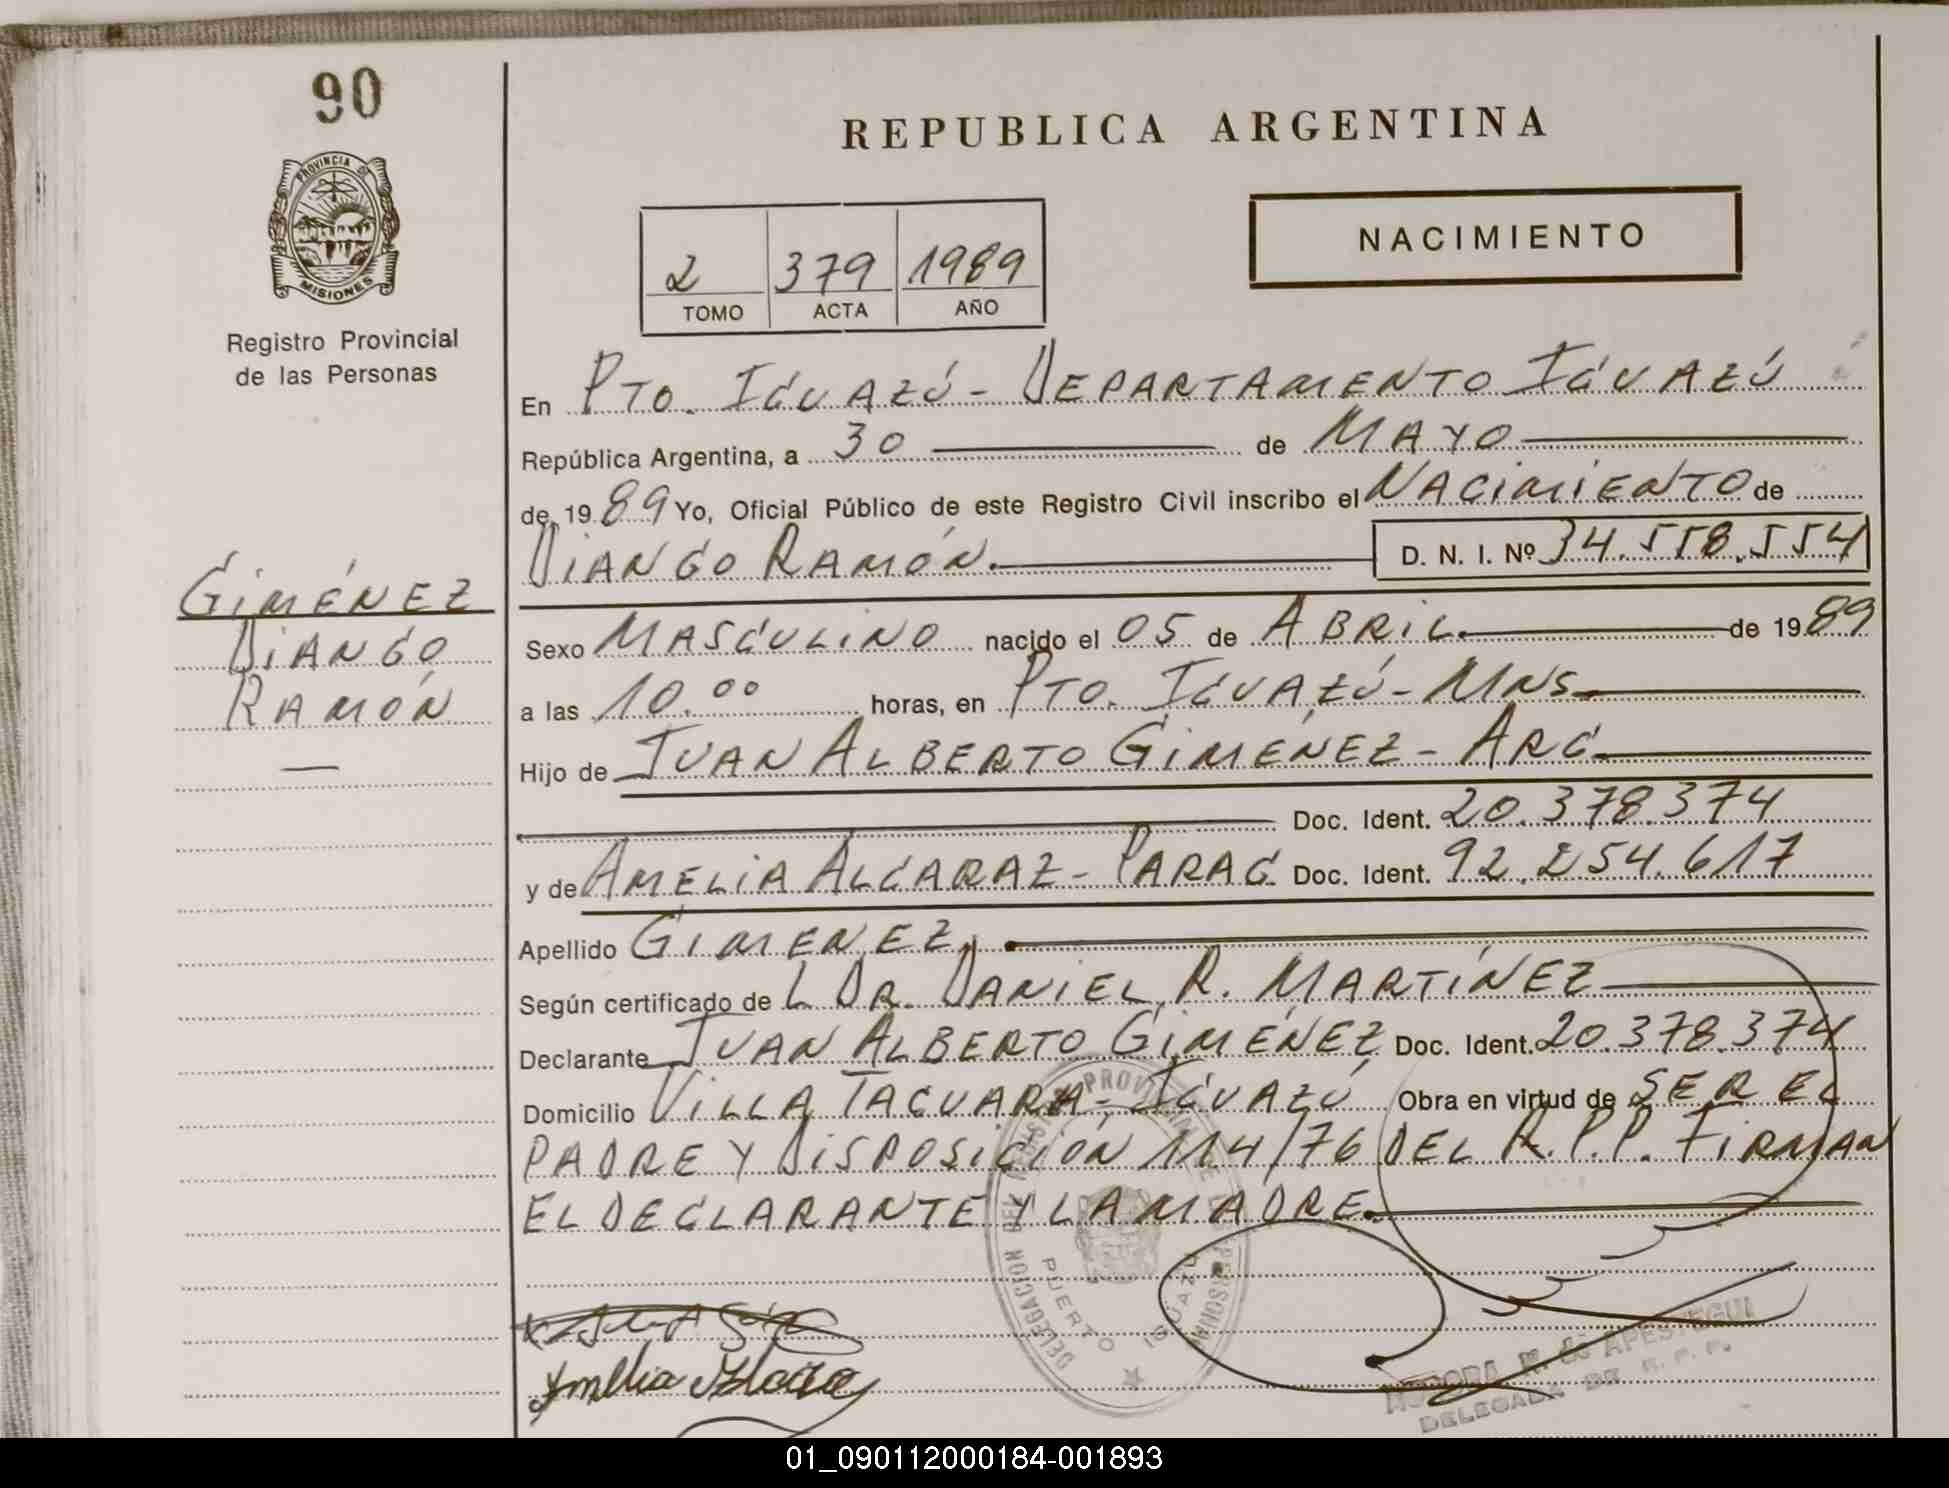 90
PROVINCIA DE
MISIONES
Registro Provincial
de las Personas
GIMÉNEZ
DIANGO
RAMÓN
REPUBLICA ARGENTINA
NACIMIENTO
2 379 1989
TOMO ACTA AÑO
En PTO. IGUAZÚ - DEPARTAMENTO IGUAZÚ
República Argentina, a 30 de MAYO
de 1989 Yo, Oficial Público de este Registro Civil inscribo el NACIMIENTO de
DIANGO RAMÓN. D. N. I. Nº 34.558.554
Sexo MASCULINO nacido el 05 de ABRIL de 1989
a las 10.00 horas, en PTO. IGUAZÚ - MNS
Hijo de JUAN ALBERTO GIMÉNEZ - ARG
Doc. Ident. 20.378.374
y de AMELIA ALCARAZ - PARAG. Doc. Ident. 92.254.617
Apellido GIMENEZ
Según certificado de L DR. DANIEL R. MARTÍNEZ
Declarante JUAN ALBERTO GIMÉNEZ Doc. Ident. 20.378.374
Domicilio VILLA TACUARA - IGUAZÚ Obra en virtud de SER EL
PADRE Y DISPOSICIÓN 114/76 DEL R.P.P. FIRMAN
EL DECLARANTE Y LA MADRE.
DELEGACION DEL REGISTRO PROVINCIAL DE LAS PERSONAS
PUERTO IGUAZU
DE APESTEGUI
DELEGADA DE R. P. P.
01_090112000184-001893